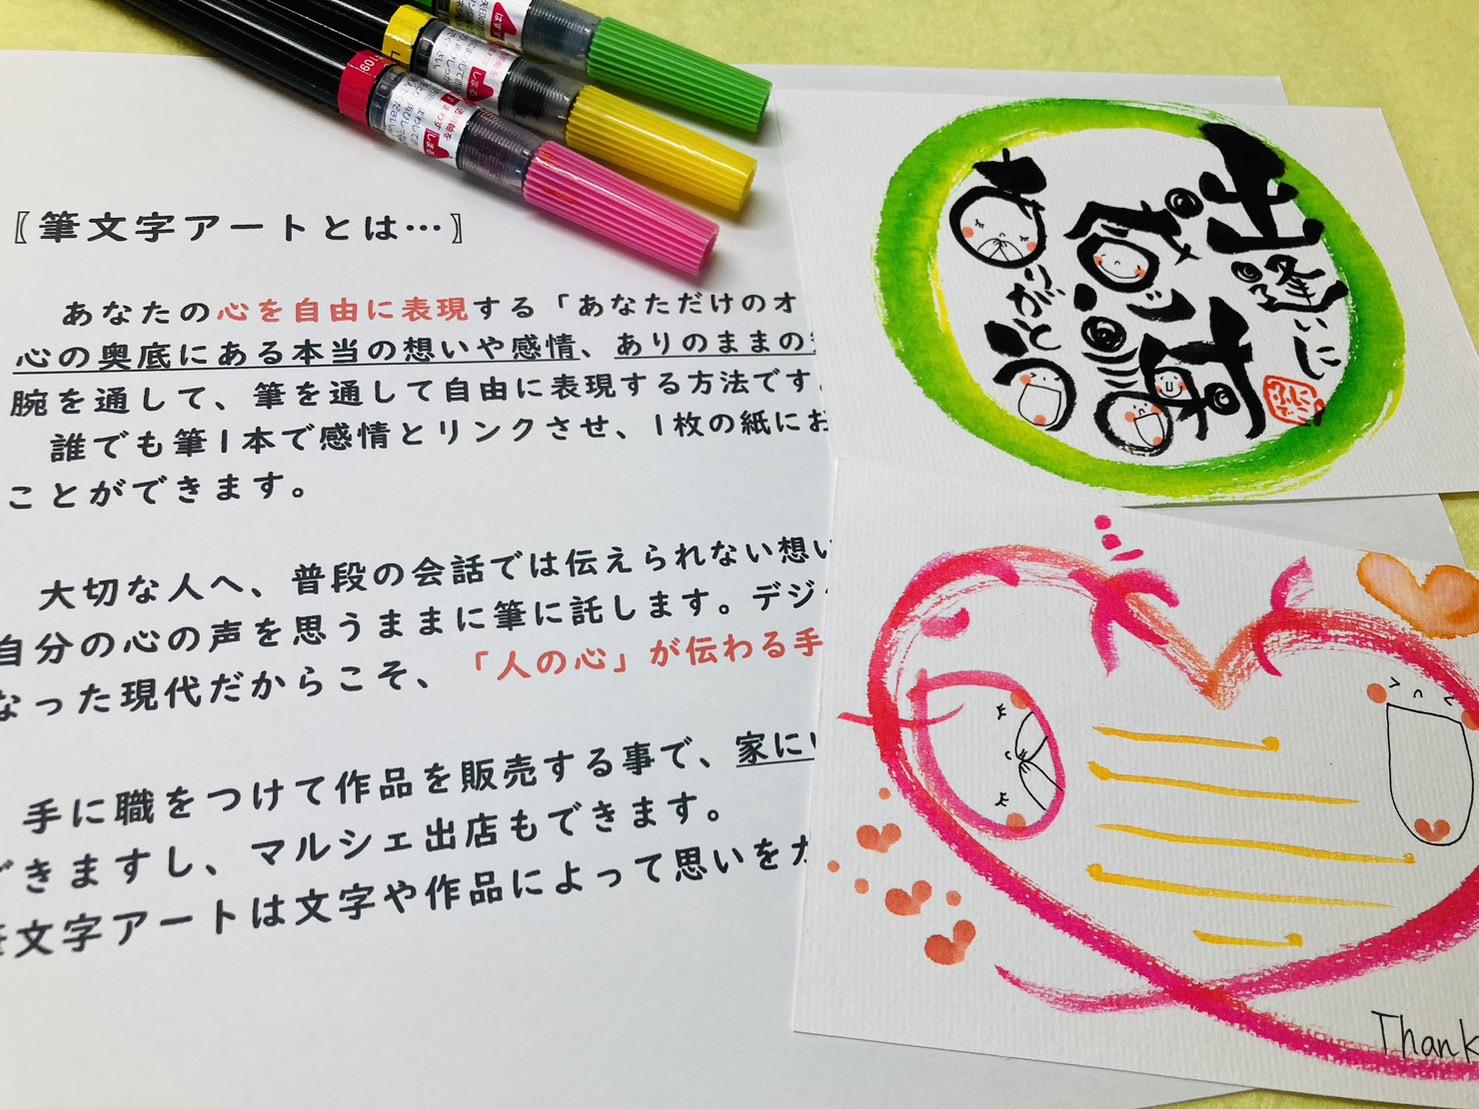 〖筆文字アートとは…〗
あなたの心を自由に表現する「あなただけのオ
心の奥底にある本当の想いや感情、ありのままの
腕を通して、筆を通して自由に表現する方法です。
誰でも筆1本で感情とリンクさせ、1枚の紙にお
ことができます。
大切な人へ、普段の会話では伝えられない想い
自分の心の声を思うままに筆に託します。デジ
なった現代だからこそ、「人の心」が伝わる手
手に職をつけて作品を販売する事で、家に
できますし、マルシェ出店もできます。
筆文字アートは文字や作品によって思いを
出逢いに
心から感謝
ありがとう
Thank